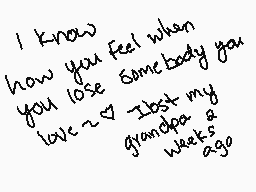 I know
how you feel when
you lose somebody you
love ~ ♡ I lost my
grandpa 2
weeks
ago